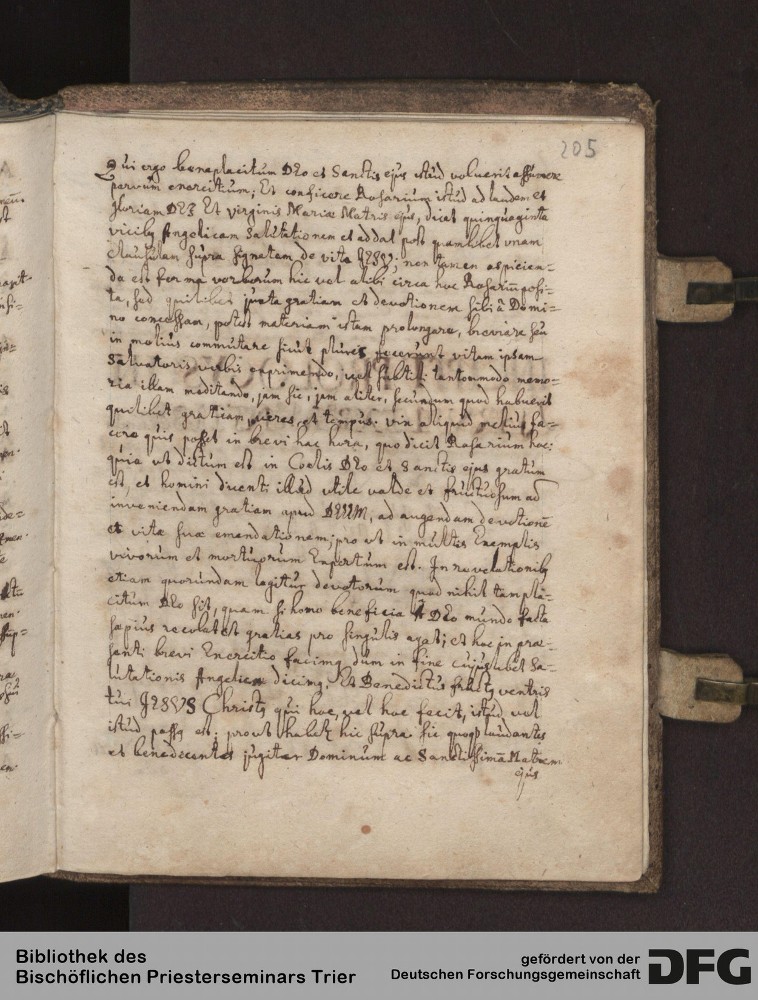 205
Qui ergo beneplacitum DEo et Sanctis ejus istud voluerit assumere
parvum exercitium; Et conficere Rosarium istud ad laudem et
gloriam DEI Et virginis Mariæ Matris ejus, dicat quinquaginta
vicibus Angelicam Salutationem et addat post quamlibet unam
clausulam supra signatam de vita JESU; non tamen aspicien=
da est forma verborum hic vel alibi circa hoc Rosariũ posi=
ta, sed quilibet juxta gratiam et devotionem sibi â Domi=
no concessam, potest materiam istam prolongare, breviare seu
in melius commutare sicut plures fecerunt vitam ipsam
Salvatoris verbis exprimendo, vel tantummodo memo=
ria illam meditando, jam sic, jam aliter, secundum quod habuerit
quilibet gratiam, vires, et tempus. vix aliquid melius fa=
cere quis posset in brevi hac hora, quo dicit Rosarium hoc;
quia ut dictum est in Coelis DEo et Sanctis ejus gratum
est, et homini dicenti illud utile valde et fructuosum ad
inveniendam gratiam apud DEUM, ad augendam devotionẽ
et vitæ suæ emendationem; pro ut in multis Exemplis
vivorum et mortuorum Expertum est. In revelationibus
etiam quorundam legitur devotorum quod nihil tam pla=
citum DEo sit, quam si homo beneficia A DEo mundo facta
sæpius recolat et gratias pro singulis agat; et hoc in præ=
senti brevi Exercitio facimus dum in fine cujuslibet Sa=
lutationis Angelicæ dicimus, Et Benedictus fructus ventris
tui JESUS Christus qui hoc, vel hoc fecit, istud vel
istud passus est; prout habetur hic supra sic quoque laudantes
et benedicentes jugiter Dominum ac Sanctissimã Matrem
ejus
Bibliothek des
Bischöflichen Priesterseminars Trier
gefördert von der
Deutschen Forschungsgemeinschaft
DFG